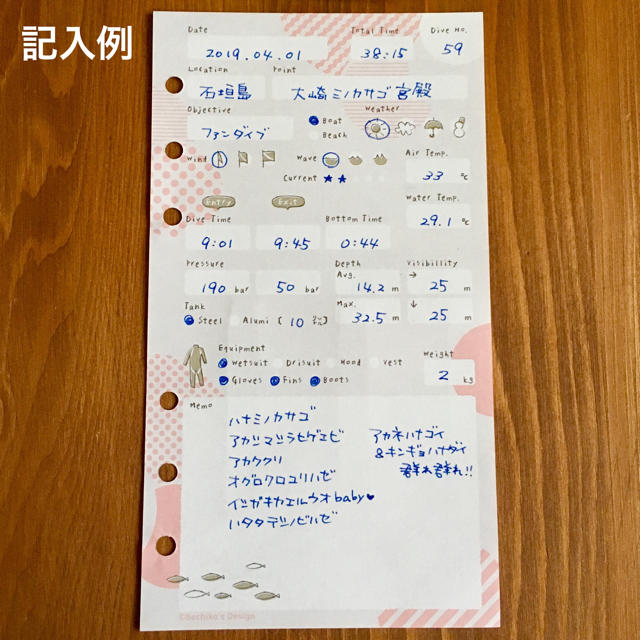 記入例
Date Total Time Dive No.
2019.04.01 38:15 59
Location Point
石垣島 大崎ミノカサゴ宮殿
Objective Weather
ファンダイブ Boat
Beach
Wind Wave Air Temp.
Current ★★ 33 ℃
Entry Exit Water Temp.
Dive Time Bottom Time 29.1 ℃
9:01 9:45 0:44
Pressure Depth Visibillity
Avg. →
190 bar 50 bar 14.2 m 25 m
Tank Max. ↓
Steel Alumi [10 リットル] 32.5 m 25 m
Equipment Weight
Wetsuit Drisuit Hood Vest
Gloves Fins Boots 2 kg
Memo
ハナミノカサゴ
アカシマシラヒゲエビ
アカククリ
オグロクロユリハゼ
イシガキカエルウオbaby♥
ハタタテシノビハゼ
アカネハナゴイ
&キンギョハナダイ
群れ群れ!!
©Sechiko's Design